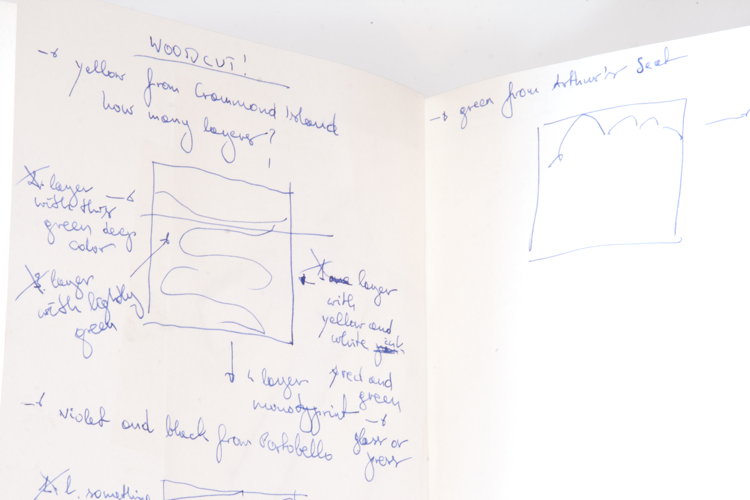 WOODCUT!
→ yellow from Crammond Island
how many layers?
layer →
with this
green deep
color
layer
with lightly
green
layer
with
yellow and
white ink
red and
green
4 layer
monotyprint →
glass or
press
→ violet and black from Portobello
l. something
→ green from Arthur's Seat